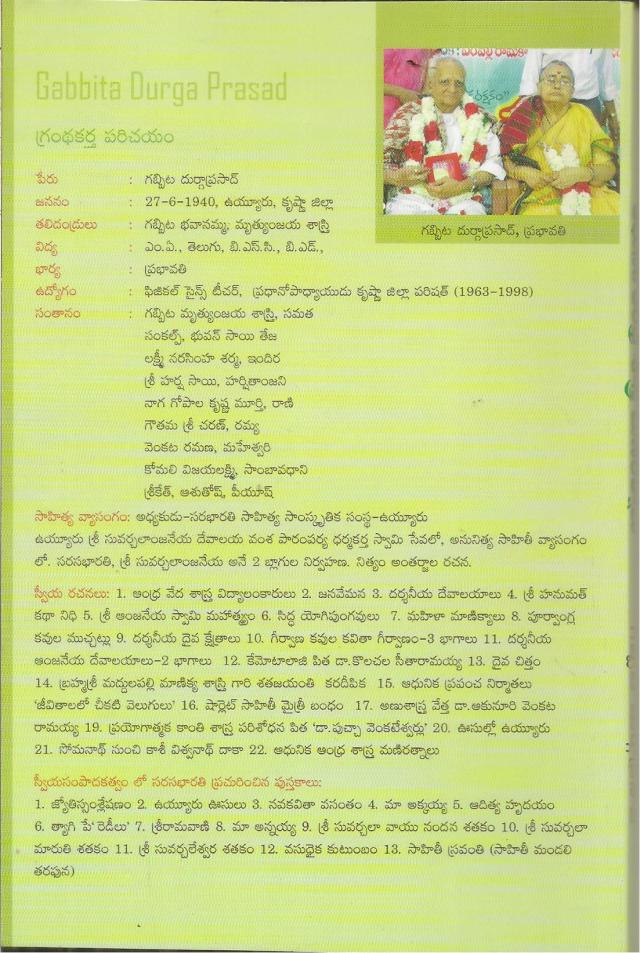 Gabbita Durga Prasad
గ్రంథకర్త పరిచయం
పేరు : గబ్బిట దుర్గాప్రసాద్
జననం : 27-6-1940, ఉయ్యూరు, కృష్ణా జిల్లా
తలిదండ్రులు : గబ్బిట భవానమ్మ, మృత్యుంజయ శాస్త్రి
గబ్బిట దుర్గాప్రసాద్, ప్రభావతి
విద్య : ఎం.ఏ., తెలుగు, బి.ఎస్.సి., బి.ఎడ్.,
భార్య : ప్రభావతి
ఉద్యోగం : ఫిజికల్ సైన్స్ టీచర్, ప్రధానోపాధ్యాయుడు కృష్ణా జిల్లా పరిషత్ (1963-1998)
సంతానం : గబ్బిట మృత్యుంజయ శాస్త్రి, సమత
సంకల్ప్, భువన్ సాయి తేజ
లక్ష్మీ నరసింహ శర్మ, ఇందిర
శ్రీ హర్ష సాయి, హర్షితాంజని
నాగ గోపాల కృష్ణ మూర్తి, రాణి
గౌతమ శ్రీ చరణ్, రమ్య
వెంకట రమణ, మహేశ్వరి
కోమలి విజయలక్ష్మి, సాంబావధాని
శ్రీకేత్, ఆశుతోష్, పీయూష్
సాహిత్య వ్యాసంగం: అధ్యకుడు-సరభారతి సాహిత్య సాంస్కృతిక సంస్థ-ఉయ్యూరు
ఉయ్యూరు శ్రీ సువర్చలాంజనేయ దేవాలయ వంశ పారంపర్య ధర్మకర్త స్వామి సేవలో, అనునిత్య సాహితీ వ్యాసంగం
లో. సరసభారతి, శ్రీ సువర్చలాంజనేయ అనే 2 బ్లాగుల నిర్వహణ. నిత్యం అంతర్జాల రచన.
స్వీయ రచనలు: 1. ఆంధ్ర వేద శాస్త్ర విద్యాలంకారులు 2. జనవేమన 3. దర్శనీయ దేవాలయాలు 4. శ్రీ హనుమత్
కథా నిధి 5. శ్రీ ఆంజనేయ స్వామి మహాత్త్యం 6. సిద్ధ యోగిపుంగవులు 7. మహిళా మాణిక్యాలు 8. పూర్వాంగ్ల
కవుల ముచ్చట్లు 9. దర్శనీయ దైవ క్షేత్రాలు 10. గీర్వాణ కవుల కవితా గీర్వాణం-3 భాగాలు 11. దర్శనీయ
ఆంజనేయ దేవాలయాలు-2 భాగాలు 12. కేమోటాలాజి పిత డా.కొలచల సీతారామయ్య 13. దైవ చిత్తం
14. బ్రహ్మశ్రీ మద్దులపల్లి మాణిక్య శాస్త్రి గారి శతజయంతి కరదీపిక 15. ఆధునిక ప్రపంచ నిర్మాతలు
'జీవితాలలో చీకటి వెలుగులు' 16. షార్లెట్ సాహితీ మైత్రీ బంధం 17. అణుశాస్త్ర వేత్త డా.ఆకునూరి వెంకట
రామయ్య 19. ప్రయోగాత్మక కాంతి శాస్త్ర పరిశోధన పిత 'డా.పుచ్చా వెంకటేశ్వర్లు' 20. ఊసుల్లో ఉయ్యూరు
21. సోమనాథ్ నుంచి కాశీ విశ్వనాథ్ దాకా 22. ఆధునిక ఆంధ్ర శాస్త్ర మణిరత్నాలు
స్వీయసంపాదకత్వం లో సరసభారతి ప్రచురించిన పుస్తకాలు:
1. జ్యోతిస్సంశ్లేషణం 2. ఉయ్యూరు ఊసులు 3. నవకవితా వసంతం 4. మా అక్కయ్య 5. ఆదిత్య హృదయం
6. త్యాగి పే' రెడీలు' 7. శ్రీరామవాణి 8. మా అన్నయ్య 9. శ్రీ సువర్చలా వాయు నందన శతకం 10. శ్రీ సువర్చలా
మారుతి శతకం 11. శ్రీ సువర్చలేశ్వర శతకం 12. వసుధైక కుటుంబం 13. సాహితీ స్రవంతి (సాహితీ మండలి
తరఫున)